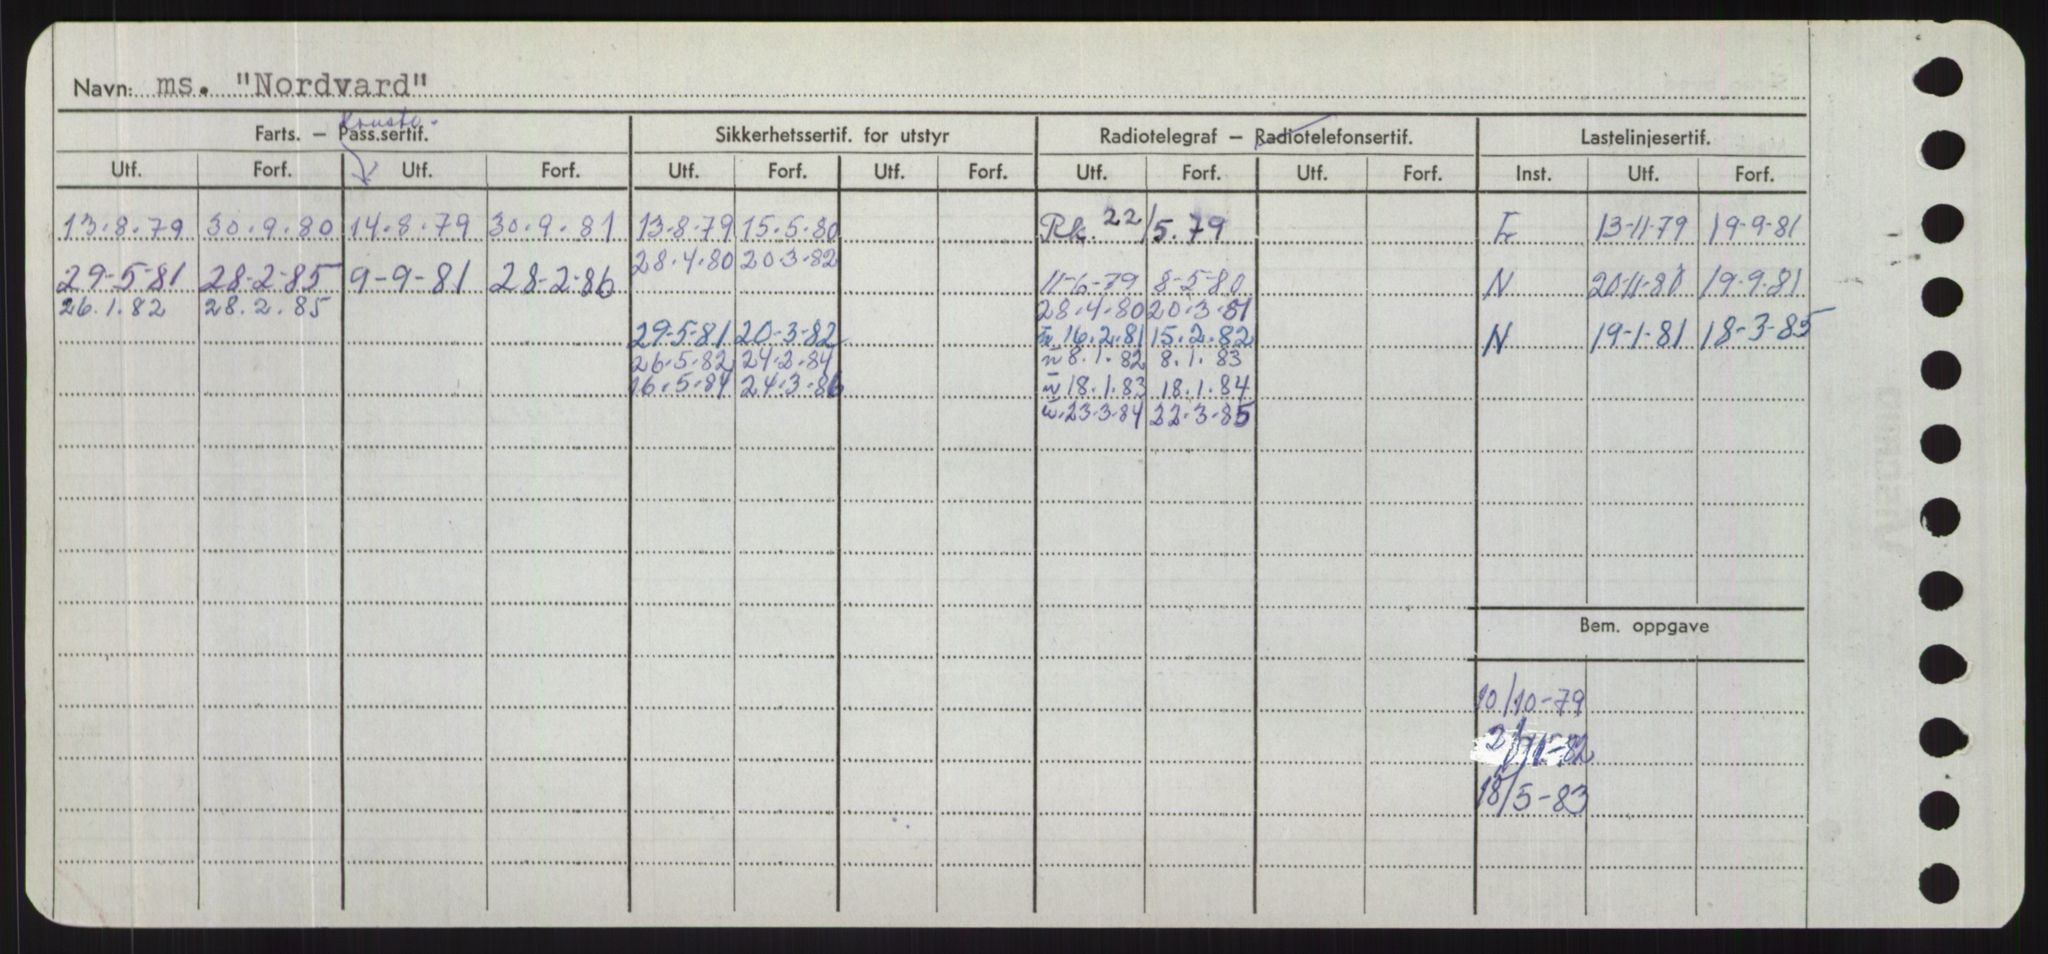 Navn: ms. "Nordvard"
Farts. – Pass.sertif. Sikkerhetssertif. for utstyr Radiotelegraf – Radiotelefonsertif. Lastelinjesertif.
Utf. Forf. Utf. Forf. Utf. Forf. Utf. Forf. Utf. Forf. Utf. Forf. Inst. Utf. Forf.
13.8.79 30.9.80 14.8.79 30.9.81 13.8.79 15.5.80 Rk. 22/5.79 13-11-79 19-9-81
28.4.80 20.3.82
29-5-81 28-2-85 9-9-81 28-2-86 11-6-79 8-5-80 N 20-11-80 19-9-81
26.1.82 28.2.85 28.4.80 20.3.81
29-5-81 20-3-82 16.2.81 15.2.82 N 19-1-81 18-3-85
26.5.82 24.2.84 8.1.82 8.1.83
16.5.84 24.3.86 18.1.83 18.1.84
23.3.84 22.3.85
Bem. oppgave
10/10-79
18/5-83